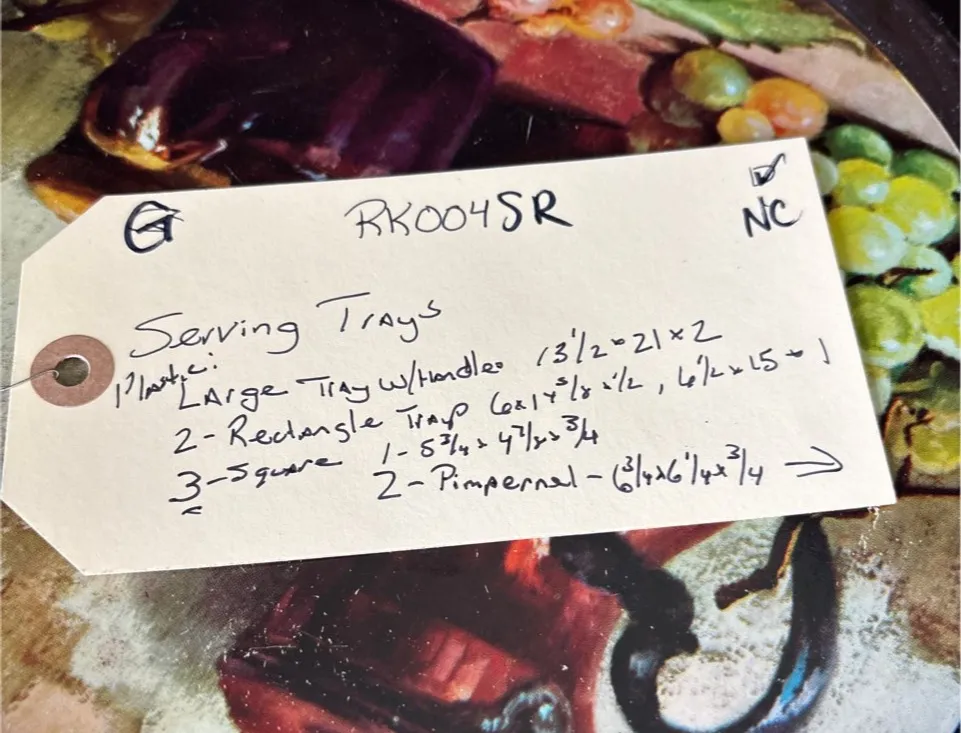 G RK004SR NC
Serving Trays
Plastic:
Large Tray w/Handles 13 1/2 x 21 x 2
2 - Rectangle Trays 6 x 1 5/8 x 1/2, 6 1/2 x 15 x 1
3 - Square 1 - 5 3/4 x 4 7/8 x 3/4
2 - Pimpernel - 6 3/4 x 6 1/4 x 3/4 →